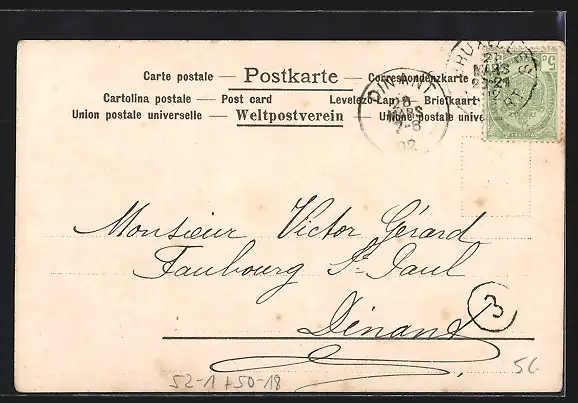 Carte postale — Postkarte — Correspondenzkarte
Cartolina postale — Post card Levelező-Lap — Briefkaart
Union postale universelle — Weltpostverein — Unione postale unive
DINANT
28
MARS
7-8
BRUXELLES
MARS
5
Monsieur Victor Gérard
Faubourg St Paul
Dinant
3
52-1 +50-18
56